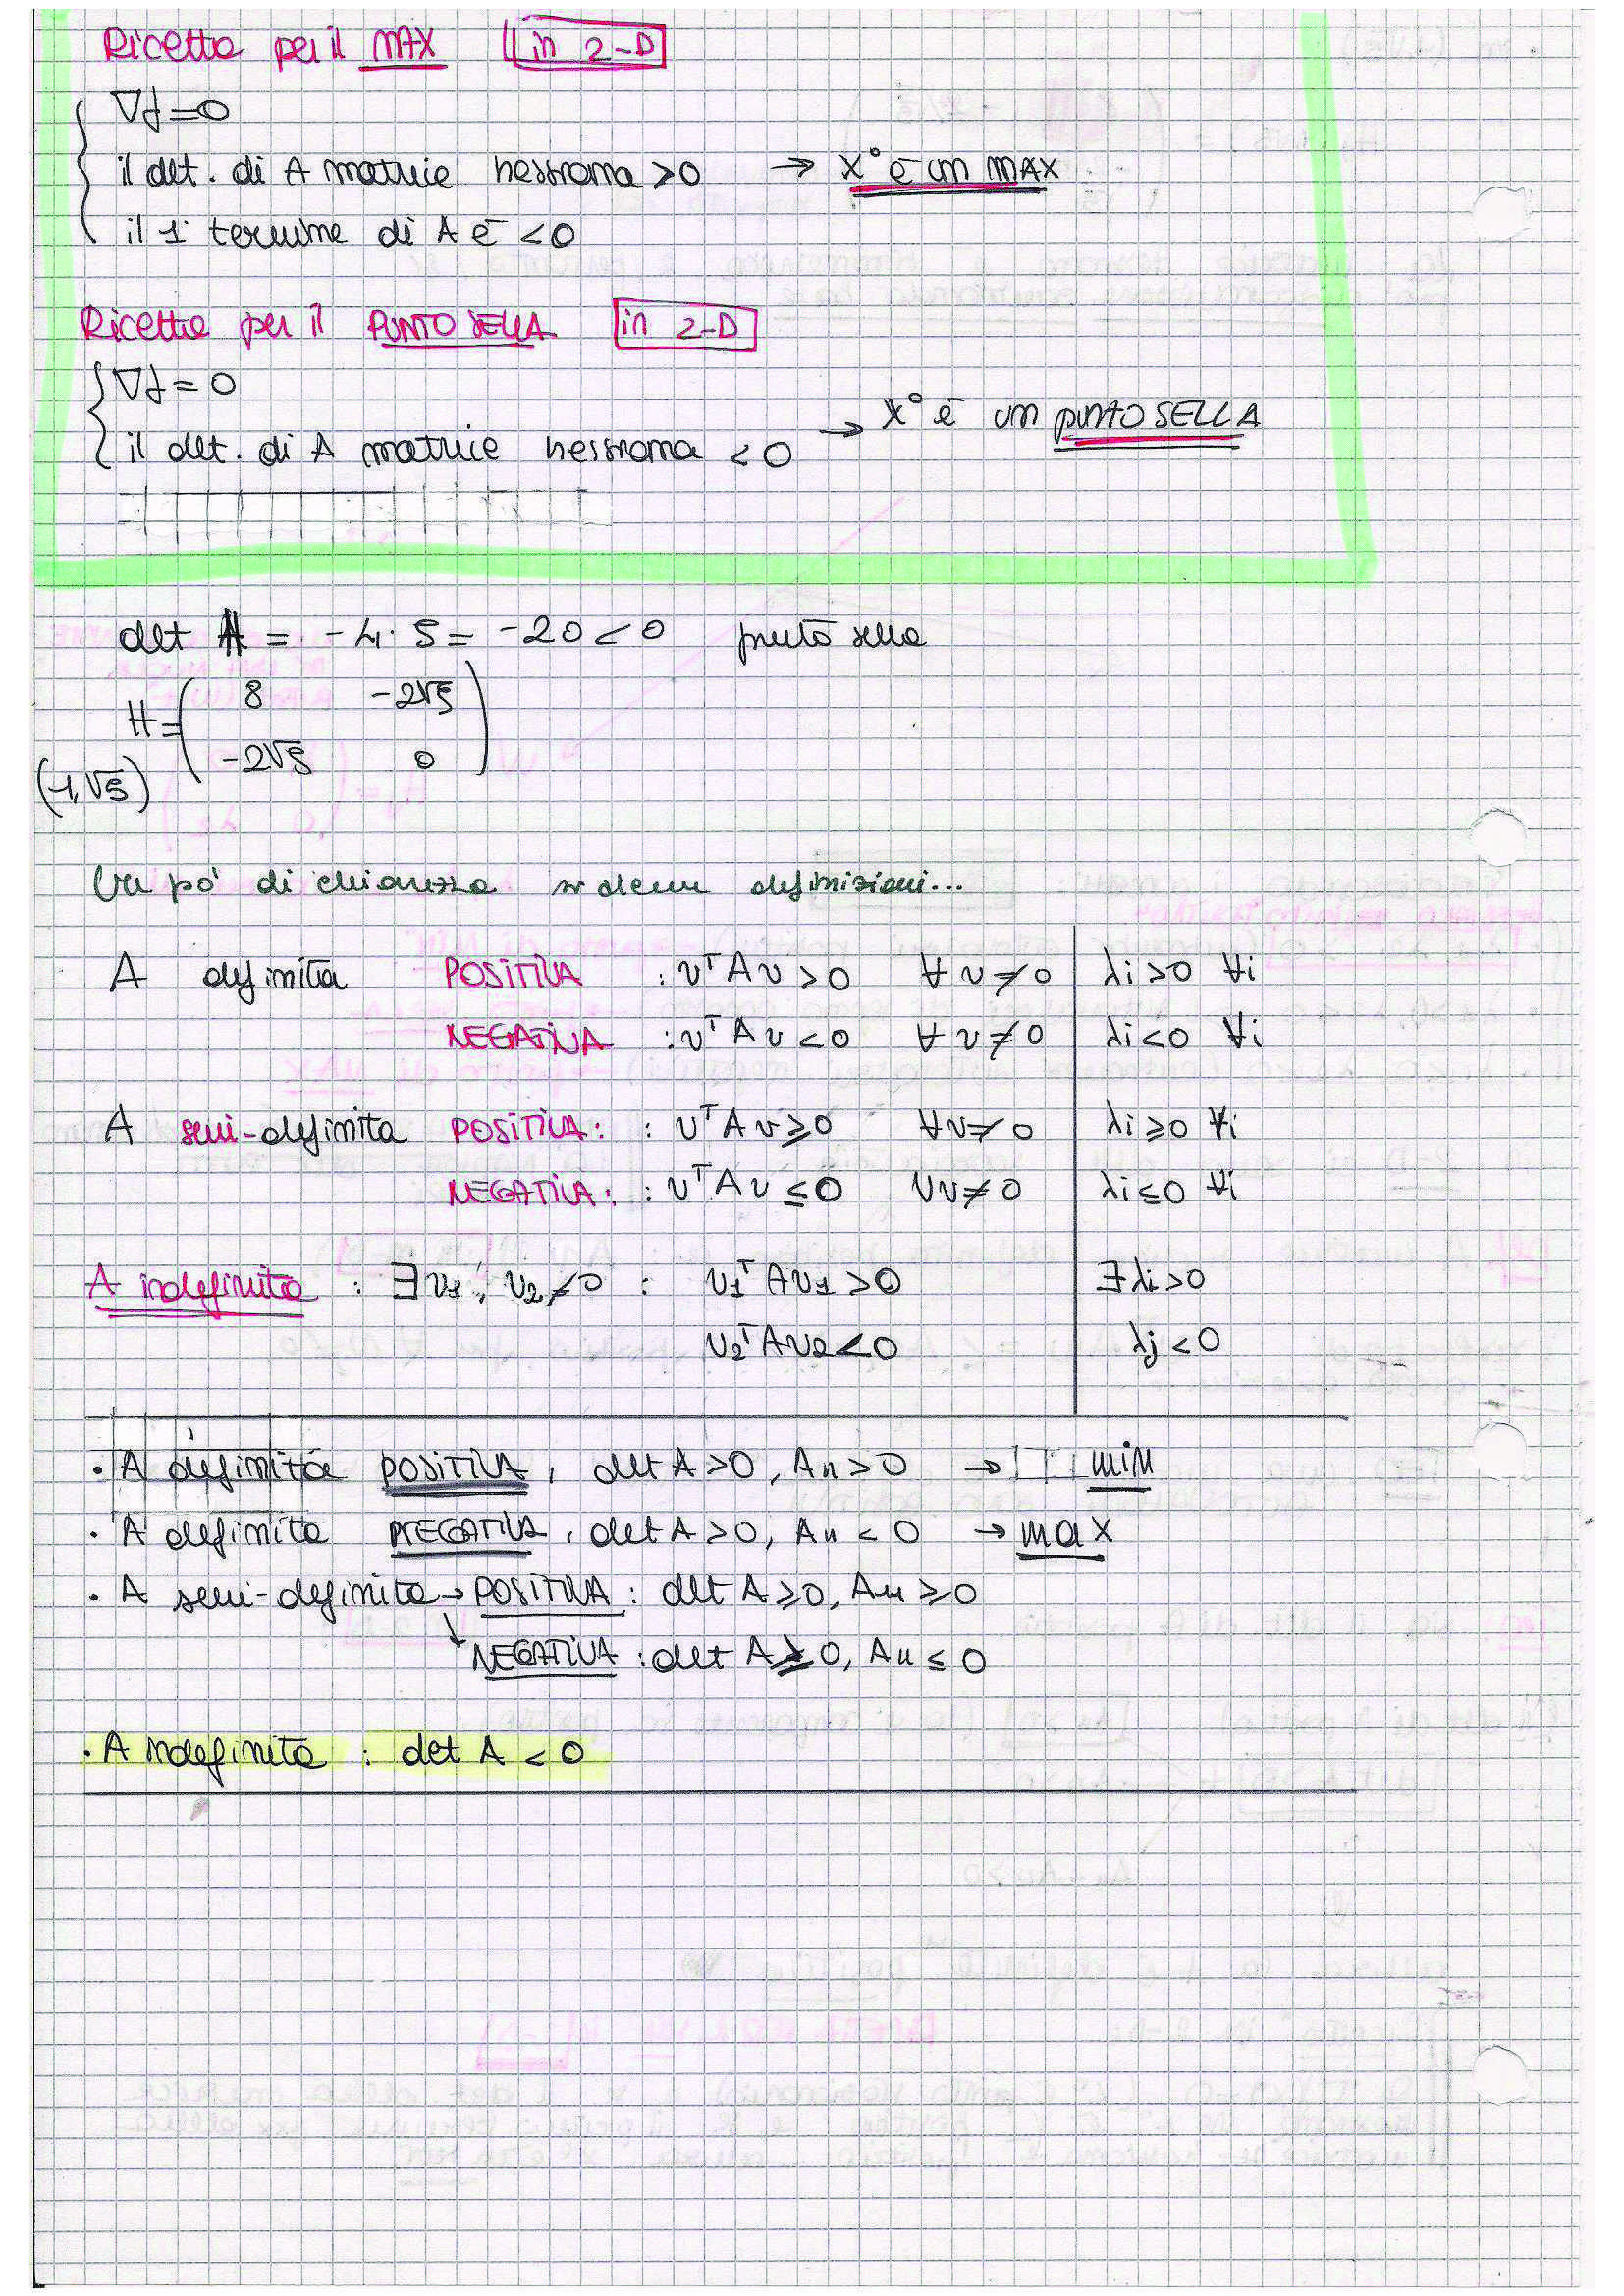 Ricetta per il MAX in 2-D
∇f=0
il det. di A matrice hessiana >0 → x° è un MAX
il 1° termine di A è <0
Ricetta per il PUNTO SELLA in 2-D
∇f=0
il det. di A matrice hessiana <0 → x° è un PUNTO SELLA
det H = -4·5 = -20 < 0 punto sella
H = ( 8 -2√5
-2√5 0 )
(-1,√5)
Un pò di chiarezza su alcune definizioni...
A definita POSITIVA : vᵀAv>0 ∀v≠0 | λi>0 ∀i
NEGATIVA : vᵀAv<0 ∀v≠0 | λi<0 ∀i
A semi-definita POSITIVA: : vᵀAv≥0 ∀v≠0 | λi≥0 ∀i
NEGATIVA: : vᵀAv≤0 ∀v≠0 | λi≤0 ∀i
A indefinita : ∃v₁, v₂≠0 : v₁ᵀAv₁>0 | ∃λi>0
v₂ᵀAv₂<0 | λj<0
· A definita POSITIVA, det A>0, A₁₁>0 → min
· A definita NEGATIVA, det A>0, A₁₁<0 → max
· A semi-definita → POSITIVA: det A≥0, A₁₁≥0
↓ NEGATIVA: det A≥0, A₁₁≤0
· A indefinita : det A<0